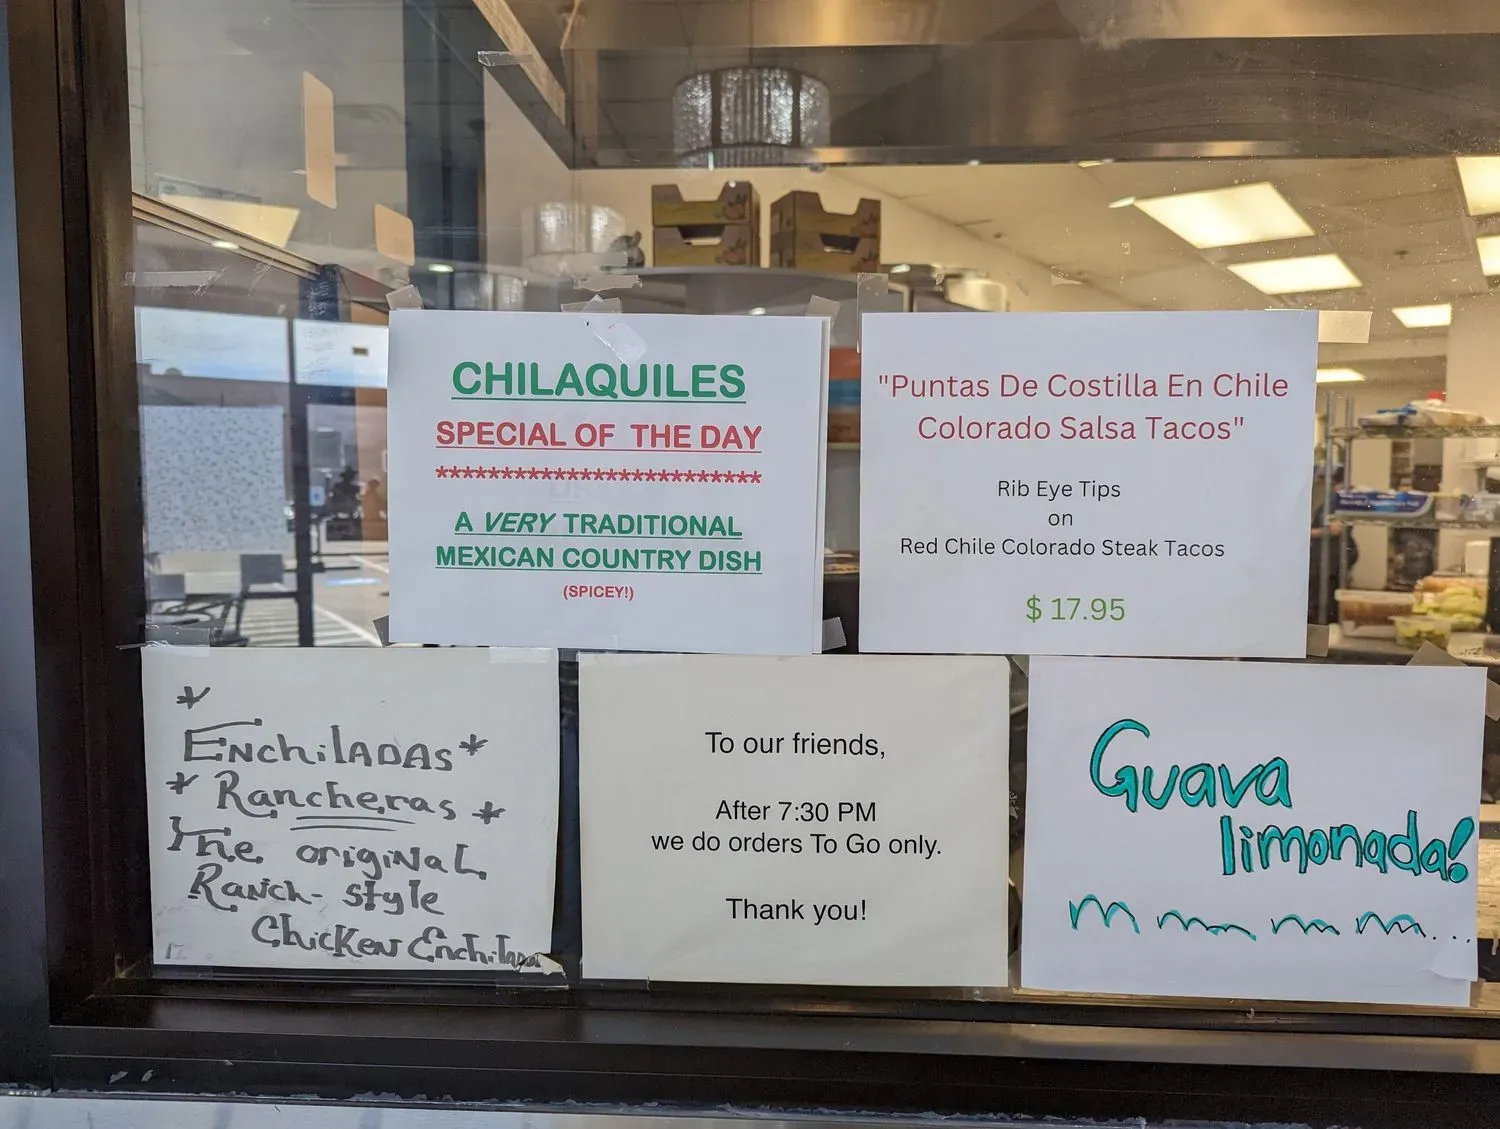 CHILAQUILES
SPECIAL OF THE DAY
*************************
A VERY TRADITIONAL
MEXICAN COUNTRY DISH
(SPICEY!)
"Puntas De Costilla En Chile
Colorado Salsa Tacos"
Rib Eye Tips
on
Red Chile Colorado Steak Tacos
$ 17.95
*
ENchilADAS*
* Rancheras *
The origiNaL
Ranch-style
ChicKen Enchilada
To our friends,
After 7:30 PM
we do orders To Go only.
Thank you!
Guava
limonada!
m mm m m...